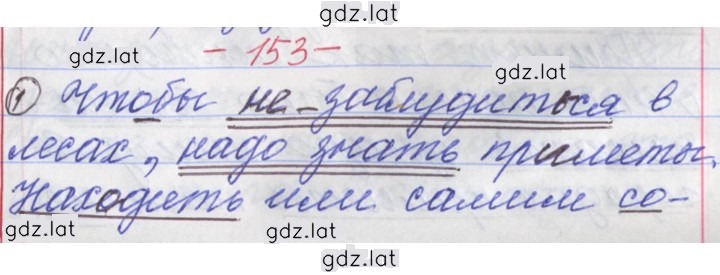 gdz.lat
gdz.lat
- 153 -
gdz.lat
① Чтобы не заблудиться в
лесах, надо знать приметы.
Находить или самим со-
gdz.lat
gdz.lat
gdz.lat